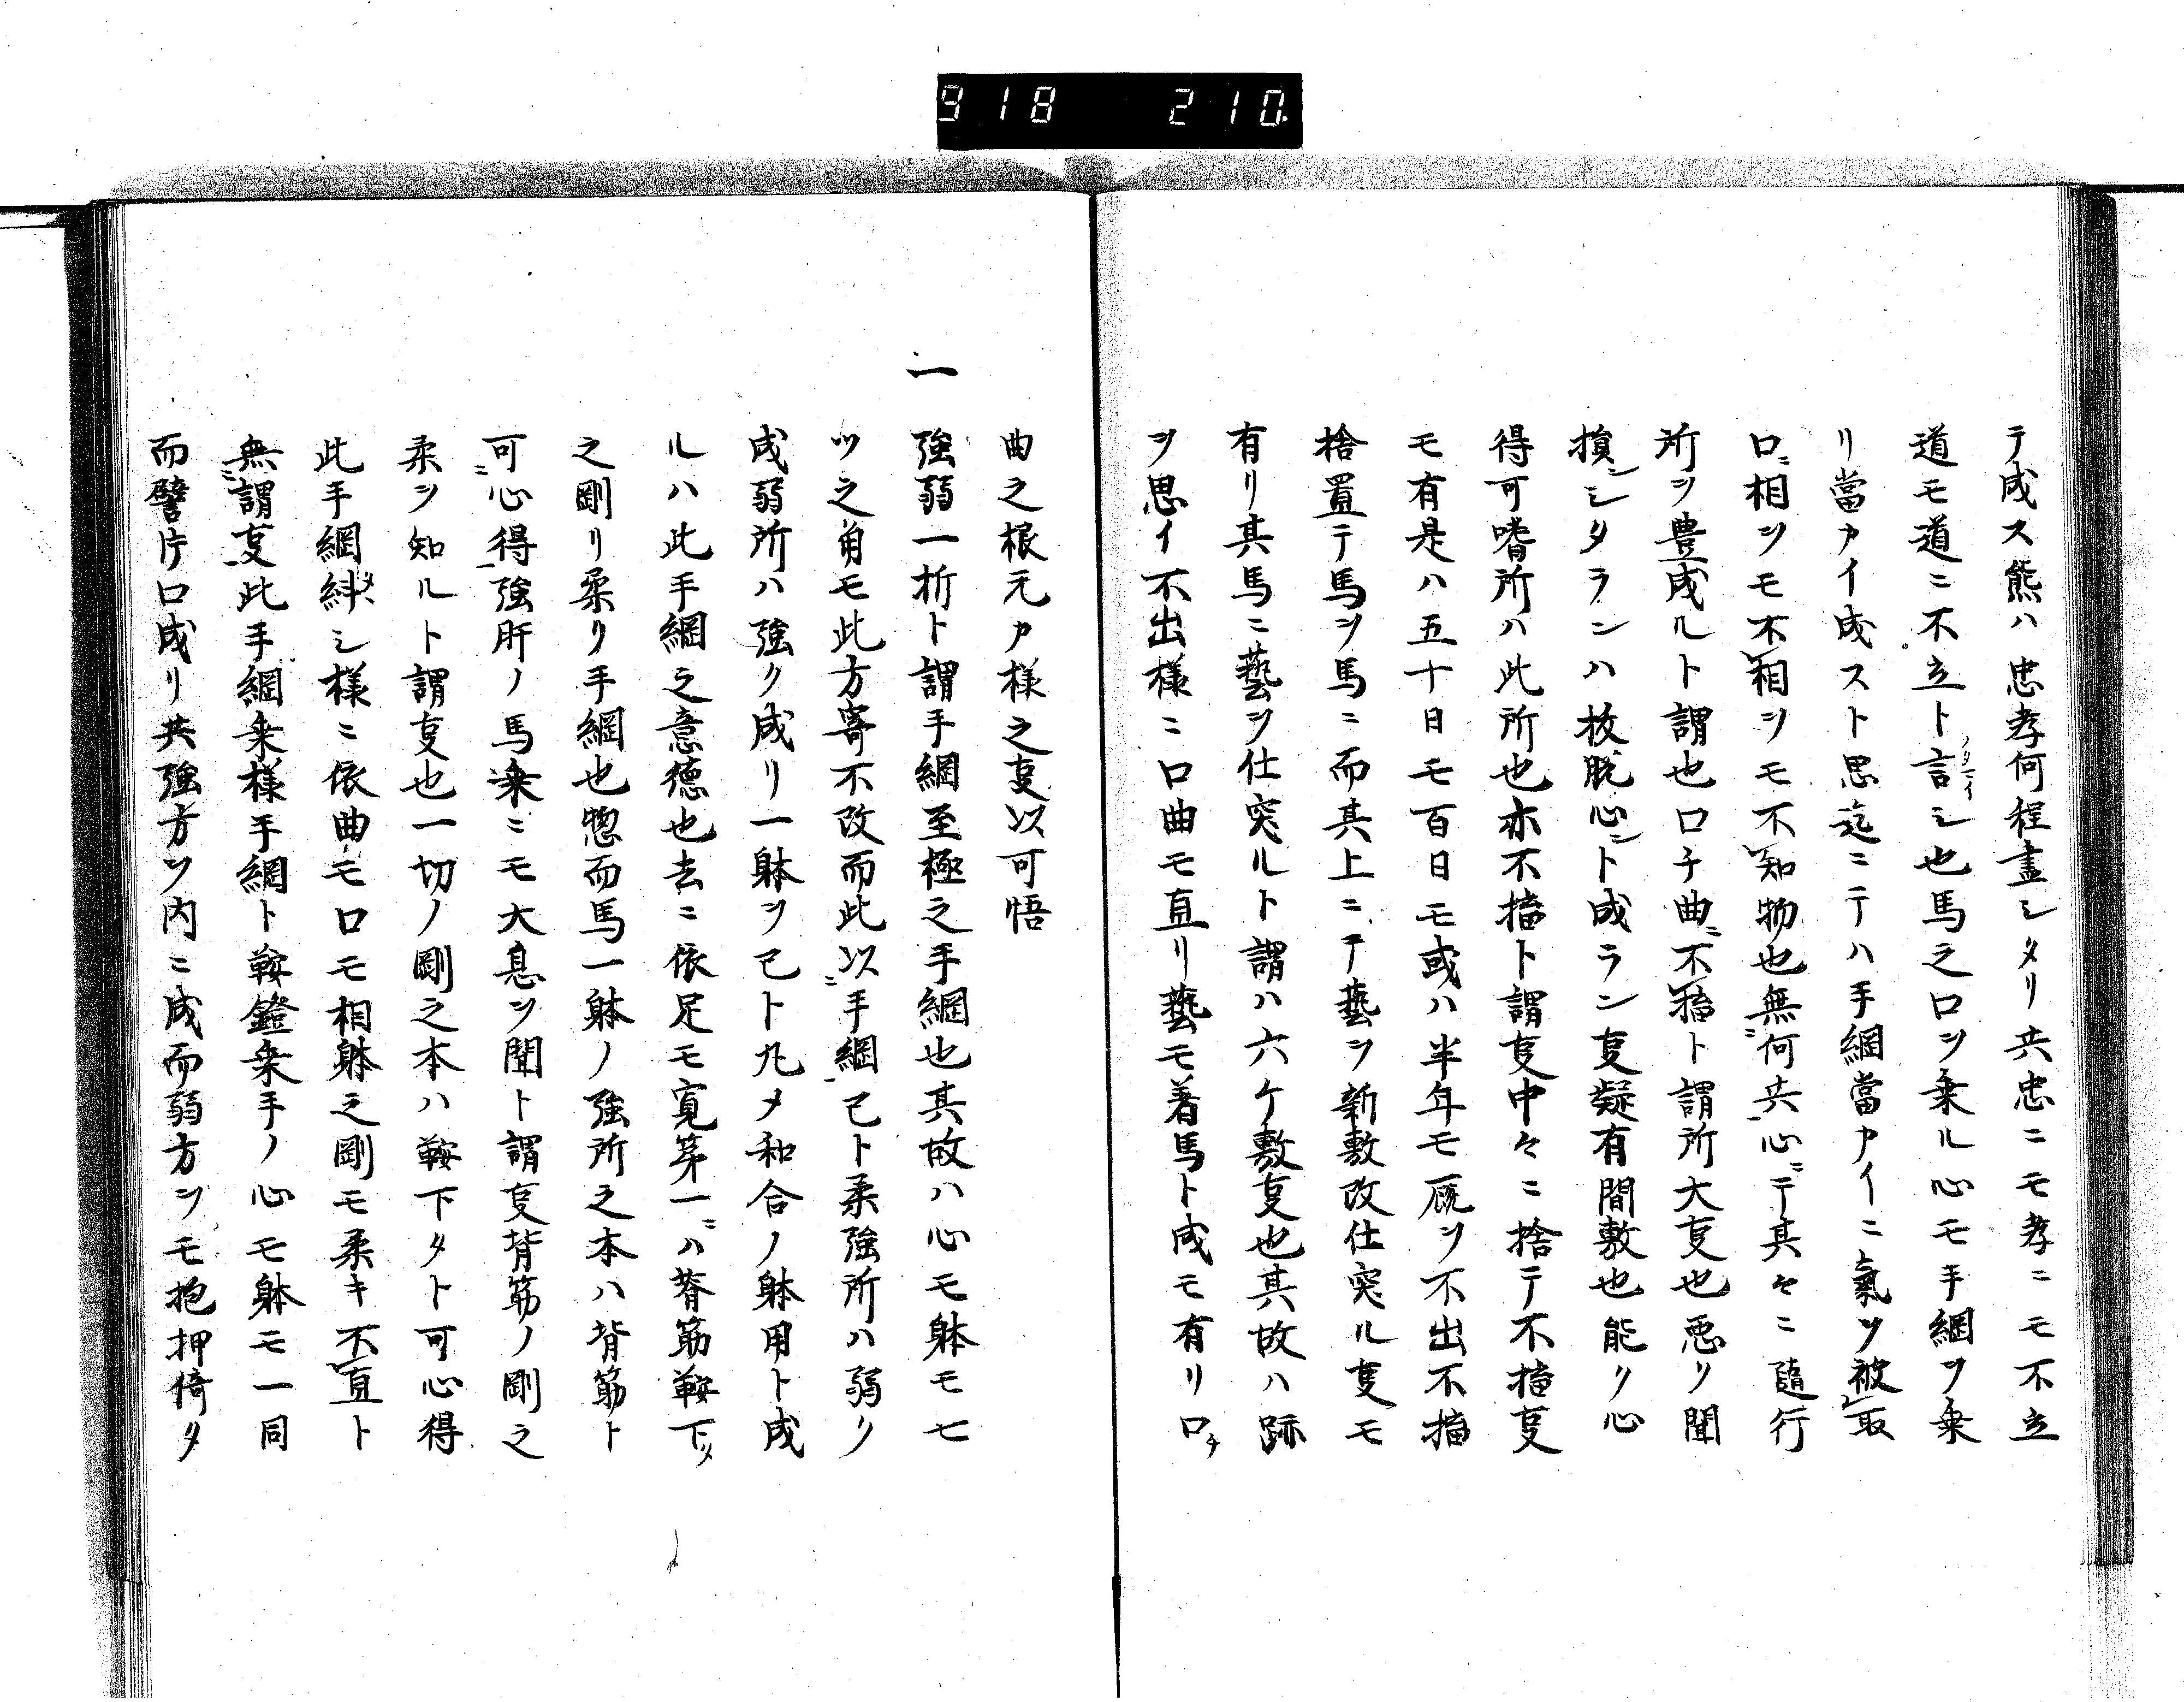 918 210.
テ成ス熊ハ忠孝何程盡シタリ共忠ニモ孝ニモ不立
道モ道ニ不立ト言シ也馬之口ヲ乗ル心モ手綱ヲ乗
リ當カイ成スト思迄ニテハ手綱當カイニ氣ヲ被取
口ニ相ヲモ不相ヲモ不知物也無何共心ニテ其々ニ隨行
所ヲ豊成ルト謂也口子曲ニ不 ト謂所大叓也悪ク聞
損シシタランハ枚脱心ト成ラン叓疑有間敷也能ク心
得可嗜所ハ此所也亦不 ト謂叓中々ニ捨テ不 叓
モ有是ハ五十日モ百日モ或ハ半年モ厩ヲ不出不
捨置テ馬ヲ馬ニ而其上ニテ藝ヲ新敷改仕突ル叓モ
有リ其馬ニ藝ヲ仕突ルト謂ハ六ケ敷叓也其故ハ跡
ヲ思イ不出様ニ口曲モ直リ藝モ着馬ト成モ有リ口
曲之根元カ様之叓以可悟
一 強弱一折ト謂手綱至極之手綱也其故ハ心モ躰モ七
ツ之角モ此方寄不改而此以手綱己ト柔強所ハ弱ク
成弱所ハ強ク成リ一躰ヲ己ト丸メ和合ノ躰用ト成
ルハ此手綱之意徳也去ニ依足モ寛第一ニハ脊筋鞍下タ
之剛リ柔リ手綱也惣而馬一躰ノ強所之本ハ背筋ト
可心得強肝ノ馬乗ニモ大息ヲ聞ト謂叓背筋ノ剛之
柔ヲ知ルト謂叓也一切ノ剛之本ハ鞍下タト可心得
此手綱 シ様ニ依曲モ口モ相躰之剛モ柔キ不直ト
無謂叓此手綱乗様手綱ト鞍鐙乗手ノ心モ躰モ一同
而譬片口成リ共強方ヲ内ニ成而弱方ヲモ抱押倚タ